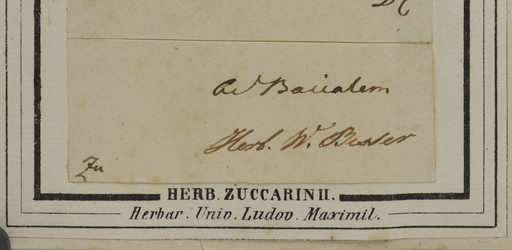 ad Baicalem
Herb. W. Besser
Zu
HERB. ZUCCARINII.
Herbar. Univ. Ludov. Maximil.